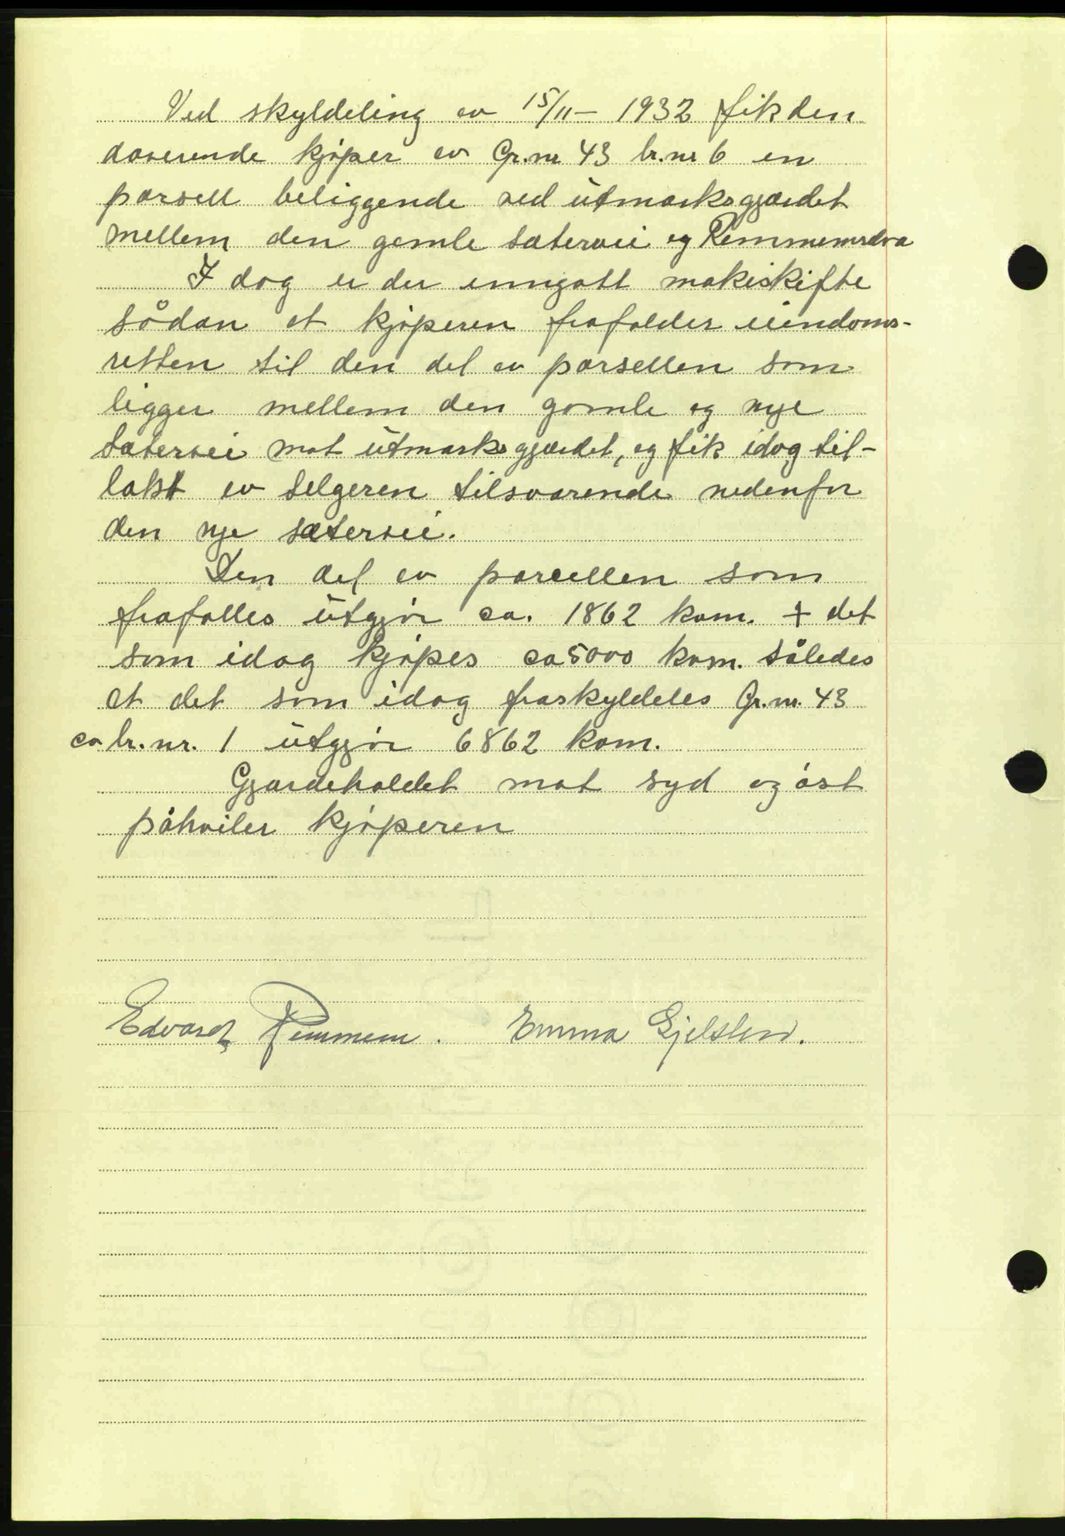 Ved skyldeling av 15/11 - 1932 fik den
daverende kjøper av Gr.nr 43 br.nr 6 en
parsell beliggende ved utmarksgjærdet
mellem den gamle sætervei og Remmemselva
I dag er der inngått makeskifte
sådan at kjøperen frafalder eiendoms-
retten til den del av parsellen som
ligger mellem den gamle og nye
sætervei mot utmarksgjærdet, og fik idag til-
lakt av selgeren tilsvarende nedenfor
den nye sætervei.
Den del av parcellen som
frafalles utgjør ca. 1862 kvm. + det
som idag kjøpes ca 5000 kvm. således
at det som idag fraskyldeles Gr.nr. 43
ca. br.nr. 1 utgjør 6862 kvm.
Gjærdeholdet mot syd og øst
påhviler kjøperen
Edvard Remmem. Emma Gjelsten.